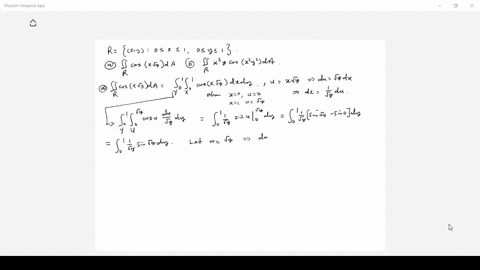 Wacom Inkspace App
R = {(x,y) : 0 ≤ x ≤ 1, 0 ≤ y ≤ 1}.
ⓐ ∬_R cos(x√y) dA ⓑ ∬_R x³y cos(x²y²) dA.
ⓐ ∬_R cos(x√y) dA = ∫_0^1 ∫_0^1 cos(x√y) dx dy , u = x√y ⇒ du = √y dx
when x=0, u=0 ⇒ dx = 1/√y du.
x=1, u=√y.
→ ∫_0^1 ∫_0^√y cos u du/√y dy = ∫_0^1 1/√y sin u |_0^√y dy = ∫_0^1 1/√y [sin√y − sin 0] dy
= ∫_0^1 1/√y sin√y dy. Let m = √y ⇒ du